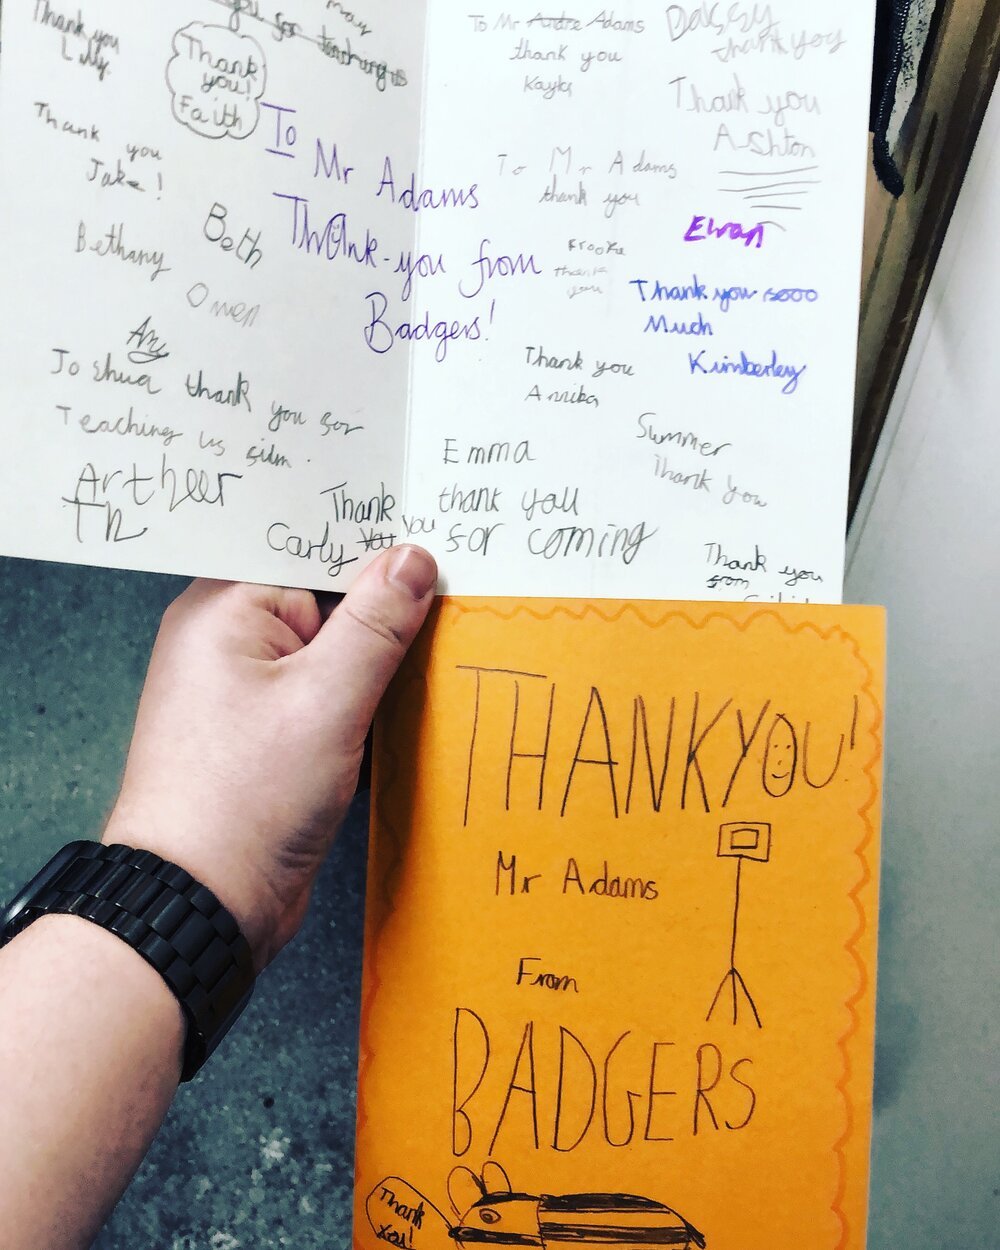 Thank you
Lily.
May
you for teaching us
Thank
you!
Faith
Thank you
Jake!
To
Mr Adams
Thank-you from
Badgers!
Beth
Bethany
Owen
Amy
Joshua thank you for
Teaching us film.
Artheer
Th
Thank
you
Carly You
To Mr Andre Adams
thank you
Kayla
Daisy
thank you
Thank you
Ashton
To Mr Adams
thank you
Brooke
thank
you
Ewan
Thank you sooo
Much
Kimberley
Thank you
Annika
Summer
Thank you
Emma
thank you
for coming
Thank you
from
THANKYOU!
Mr Adams
From
BADGERS
Thank
You!